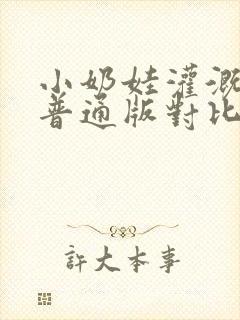 小奶娃灌溉
普通版對比
許大本事